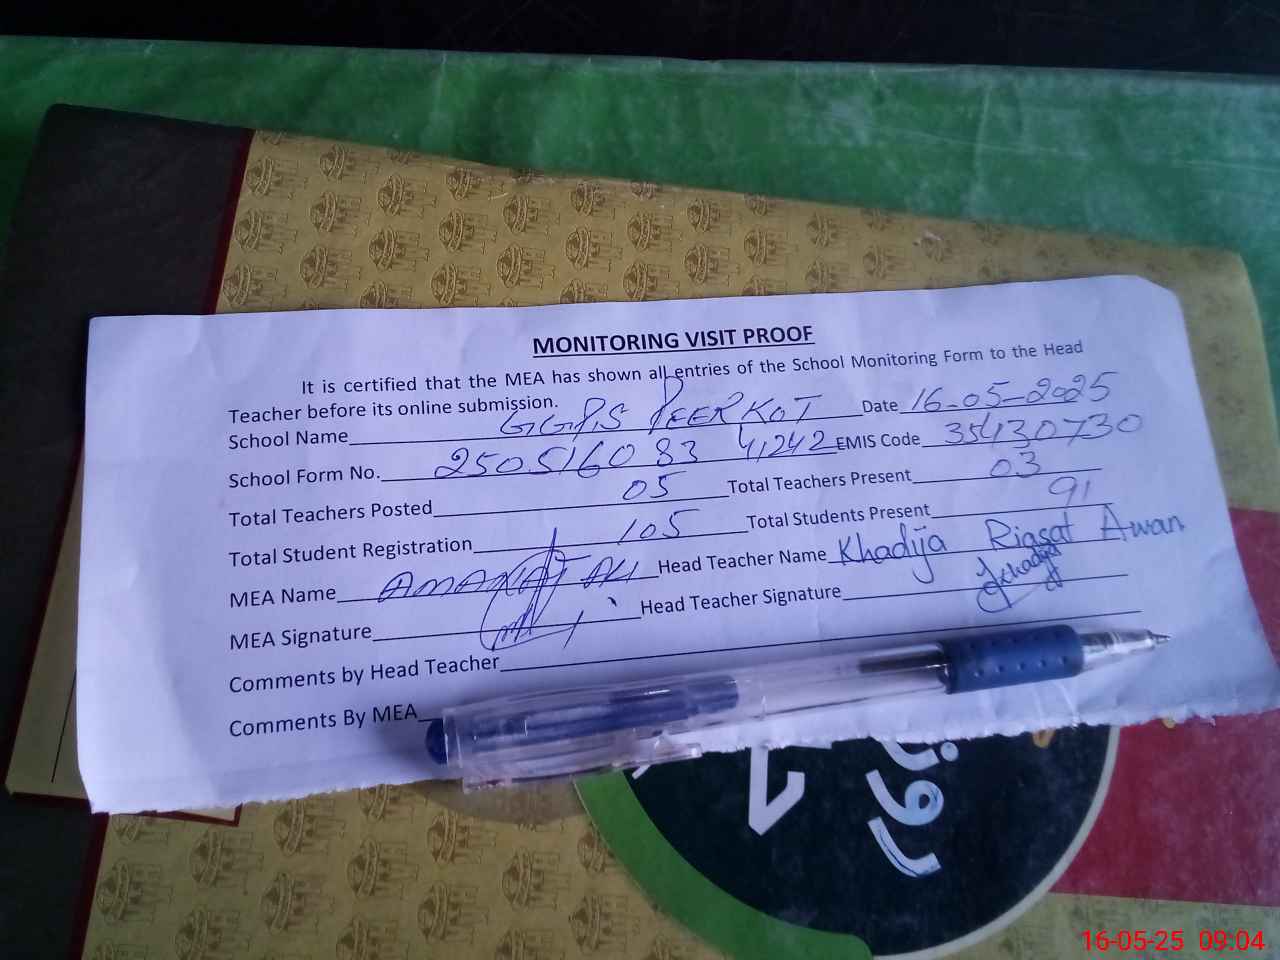 MONITORING VISIT PROOF
It is certified that the MEA has shown all entries of the School Monitoring Form to the Head
Teacher before its online submission.
School Name GGPS PEERKOT Date 16-05-2025
School Form No. 2505160 83 41242 EMIS Code 35430730
Total Teachers Posted 05 Total Teachers Present 03
Total Student Registration 105 Total Students Present 91
MEA Name AMANAT ALI Head Teacher Name Khadija Riasat Awan
MEA Signature Head Teacher Signature Khadija
Comments by Head Teacher
Comments By MEA
16-05-25 09:04